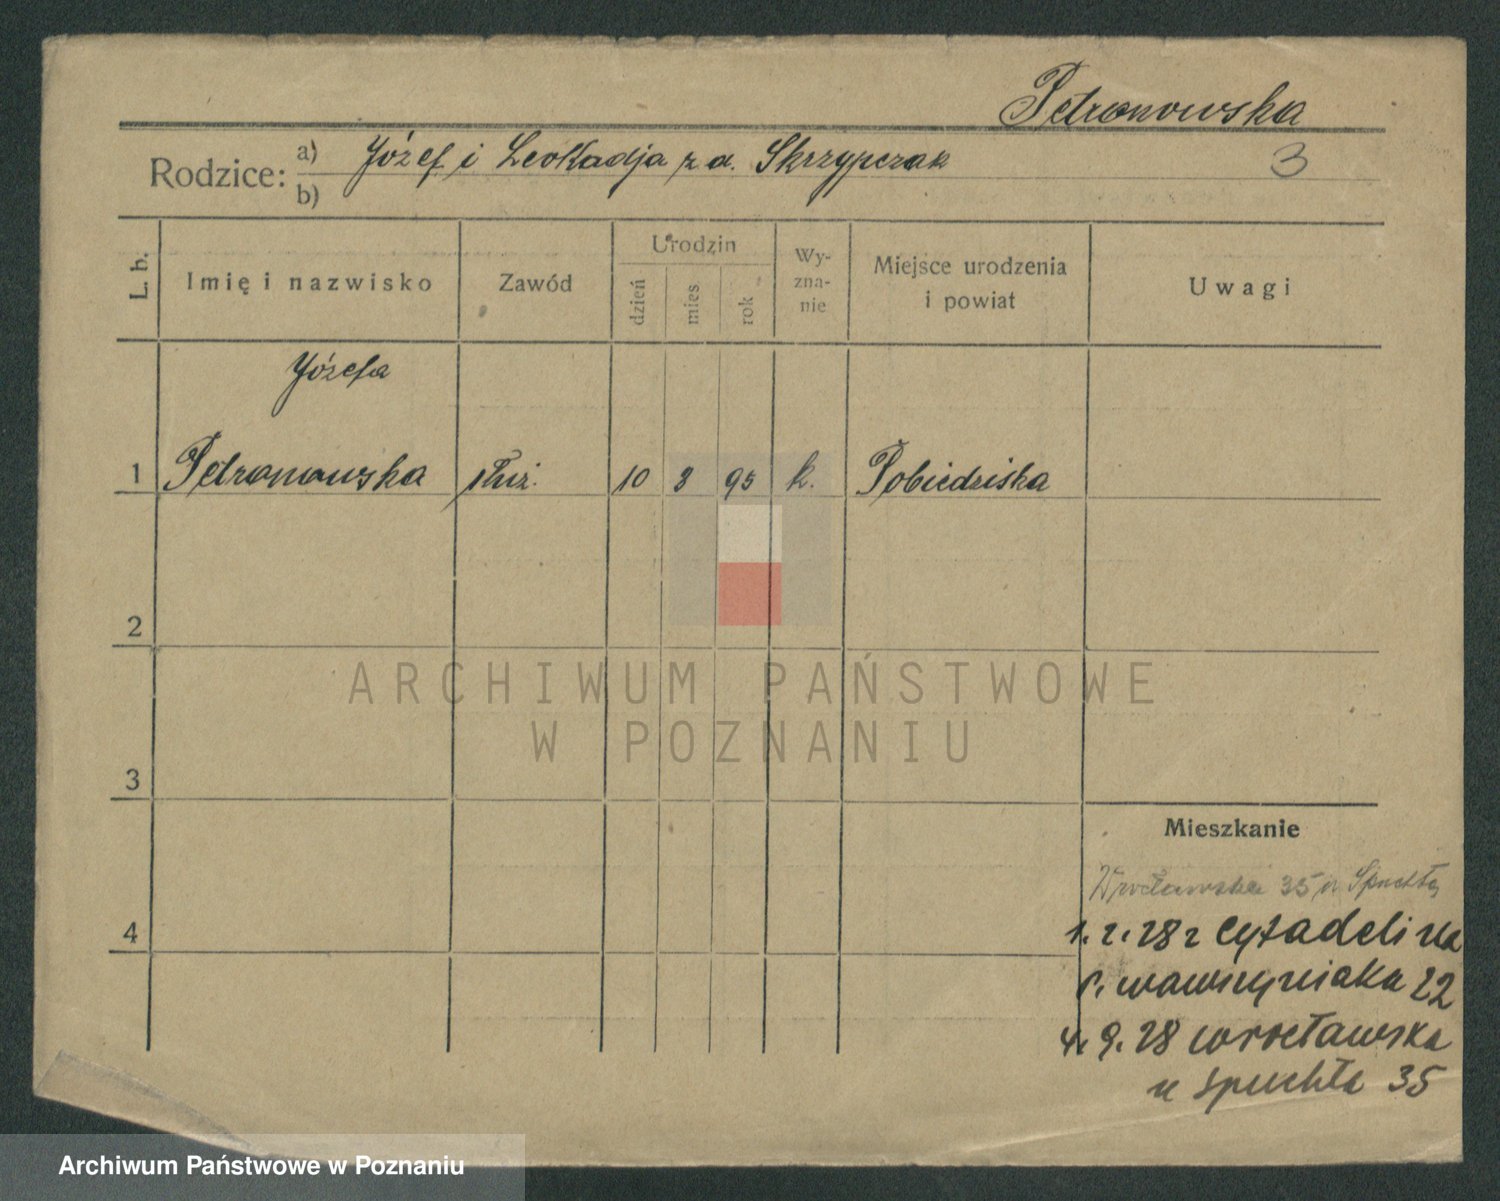 Petranowska
Rodzice: a) Józef i Leokadja z d. Skrzypczak 3
b)
L. b. Imię i nazwisko Zawód Urodzin dzień mies rok Wy-zna-nie Miejsce urodzenia i powiat Uwagi
Józefa
1 Petranowska służ. 10 3 95 k. Pobiedziska
2
ARCHIWUM PAŃSTWOWE
W POZNANIU
3
Mieszkanie
Wrocławska 35 u Spuchły
4
1. 2. 28 r cytadeli na
wawrzyniaka 22
4. 9. 28 wrocławska
u Spuchła 35
Archiwum Państwowe w Poznaniu